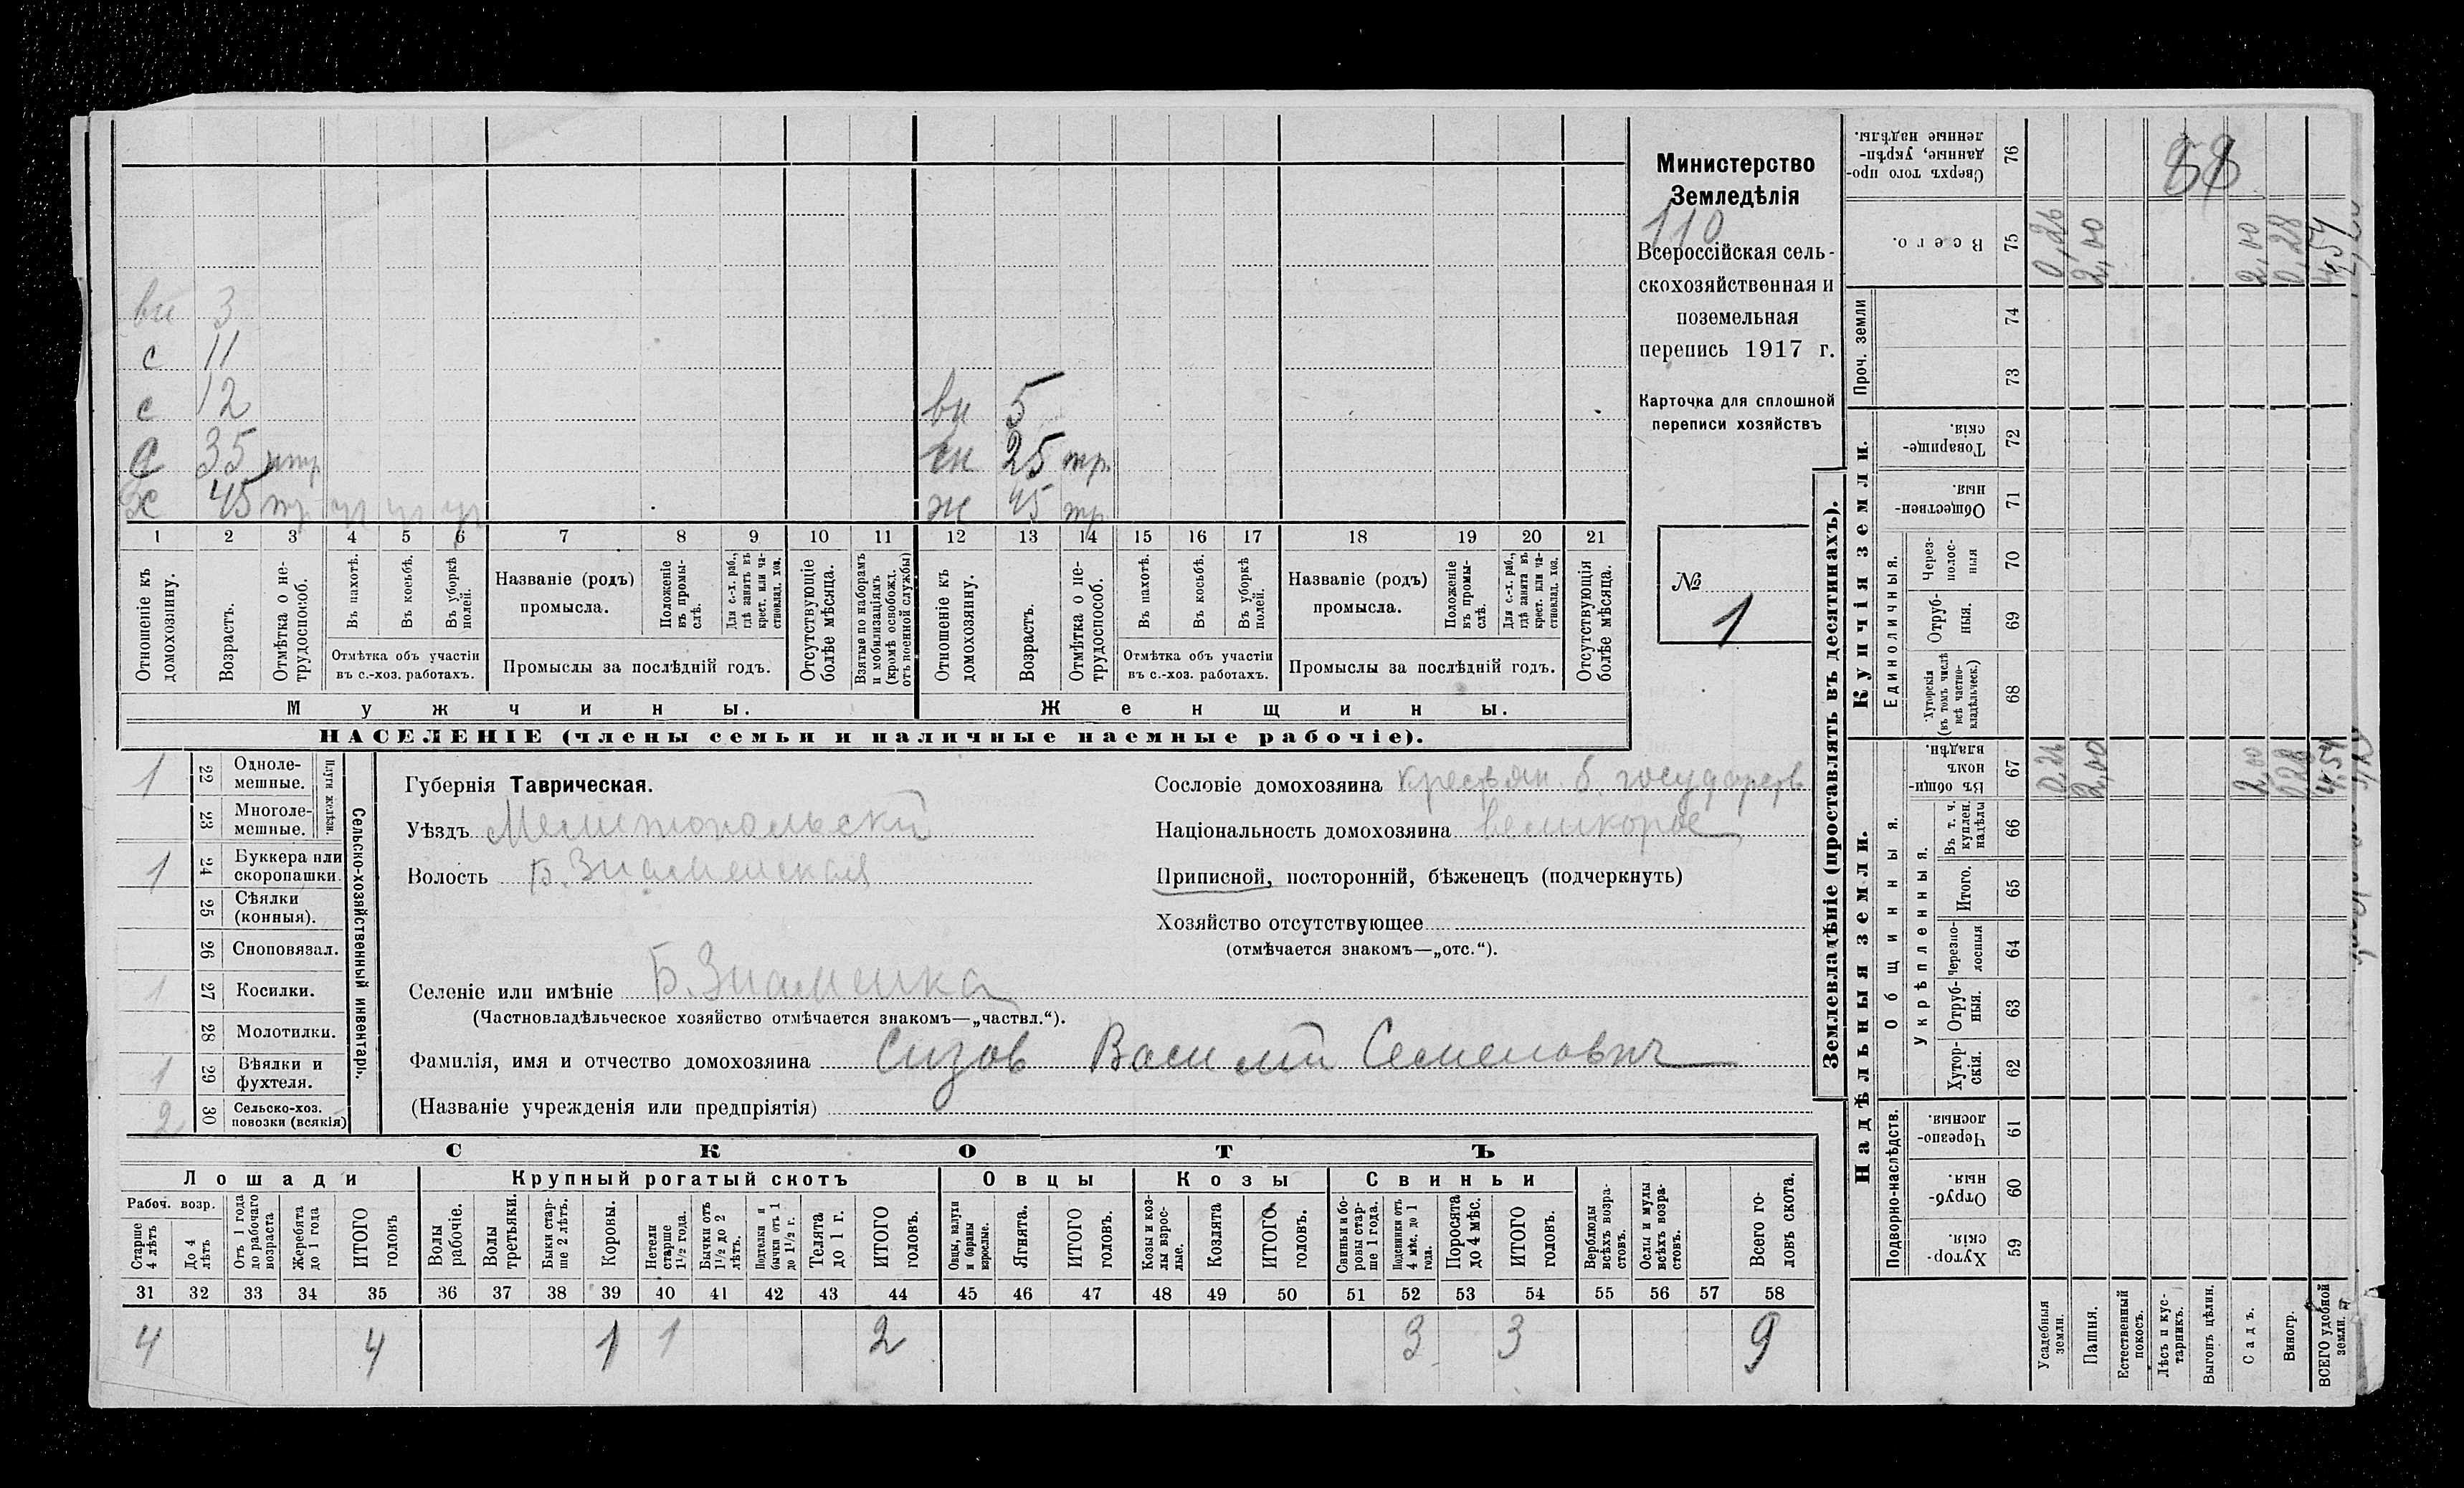 вн 3
с 11
с 12 вн 5
с 35 нтр сн 25 тр.
х 45 тр ж 45 тр
1 2 3 4 5 6 7 8 9 10 11 12 13 14 15 16 17 18 19 20 21
Отношеніе къ домохозяину.
Возрастъ.
Отмѣтка о не-трудоспособ.
Въ пахотѣ.
Въ косьбѣ.
Въ уборкѣ полей.
Отмѣтка объ участіи
въ с.-хоз. работахъ.
Названіе (родъ)
промысла.
Положеніе въ промы-слѣ.
Для с.-х. раб., гдѣ занятъ въ крест. или ча-стновлад. хоз.
Промыслы за послѣдній годъ.
Отсутствующіе болѣе мѣсяца.
Взятые по наборамъ и мобилизаціямъ (кромѣ освобожд. отъ военной службы)
Отношеніе къ домохозяину.
Возрастъ.
Отмѣтка о не-трудоспособ.
Въ пахотѣ.
Въ косьбѣ.
Въ уборкѣ полей.
Отмѣтка объ участіи
въ с.-хоз. работахъ.
Названіе (родъ)
промысла.
Положеніе въ промы-слѣ.
Для с.-х. раб., гдѣ занята въ крест. или ча-стновлад. хоз.
Промыслы за послѣдній годъ.
Отсутствующія болѣе мѣсяца.
Мужчины. Женщины.
НАСЕЛЕНІЕ (члены семьи и наличные наемные рабочіе).
Министерство
Земледѣлія
110
Всероссійская сель-
скохозяйственная и
поземельная
перепись 1917 г.
Карточка для сплошной
переписи хозяйствъ
№
1
1 22 Одноле-мешные.
23 Многоле-мешные.
Плуги желѣзн.
1 24 Буккера или скоропашки.
25 Сѣялки (конныя).
26 Сноповязал.
1 27 Косилки.
28 Молотилки.
1 29 Вѣялки и фухтеля.
2 30 Сельско-хоз. повозки (всякія)
Сельско-хозяйственный инвентарь.
Губернія Таврическая.
Уѣздъ Мелитопольский
Волость Б. Знаменская
Селеніе или имѣніе Б. Знаменка
(Частновладѣльческое хозяйство отмѣчается знакомъ—„частвл.“).
Фамилія, имя и отчество домохозяина Сизов Василий Семенович
(Названіе учрежденія или предпріятія)
Сословіе домохозяина крестьян. б. государств
Національность домохозяина великорос
Приписной, посторонній, бѣженецъ (подчеркнуть)
Хозяйство отсутствующее
(отмѣчается знакомъ—„отс.“).
СКОТЪ
Лошади Крупный рогатый скотъ Овцы Козы Свиньи
Рабоч. возр.
Старше 4 лѣтъ
До 4 лѣтъ
Отъ 1 года до рабочаго возраста
Жеребята до 1 года
ИТОГО головъ
Волы рабочіе.
Волы третьяки.
Быки стар-ше 2 лѣтъ.
Коровы.
Нетели старше 1½ года.
Бычки отъ 1½ до 2 лѣтъ.
Подтелки и бычки отъ 1 до 1½ г.
Телята до 1 г.
ИТОГО головъ.
Овцы, валухи и бараны взрослые.
Ягнята.
ИТОГО головъ.
Козы и коз-лы взрос-лые.
Козлята
ИТОГО головъ.
Свиньи и бо-ровы стар-ше 1 года.
Подсвинки отъ 4 мѣс. до 1 год.
Поросята до 4 мѣс.
ИТОГО головъ.
Верблюды всѣхъ возра-стовъ.
Ослы и мулы всѣхъ возра-стовъ.
Всего го-ловъ скота.
31 32 33 34 35 36 37 38 39 40 41 42 43 44 45 46 47 48 49 50 51 52 53 54 55 56 57 58
4 4 1 1 2 3 3 9
Землевладѣніе (проставлять въ десятинахъ).
Надѣльныя земли. Купчія земли. Проч. земли
Подворно-наслѣдств.
Общинныя.
Укрѣпленныя.
Единоличныя.
Сверхъ того про-данные, укрѣп-ленные надѣлы. 76
Всего. 75
74
73
Товарище-скія. 72
Обществен-ныя. 71
Через-полос-ныя 70
Отруб-ныя. 69
Хуторскія (въ томъ числѣ всѣ частно-владѣльческ.) 68
Въ общин-номъ владѣн. 67
Въ т. ч. куплен. надѣлы 66
Итого. 65
Черезпо-лосныя 64
Отруб-ныя. 63
Хутор-скія. 62
Черезпо-лосныя. 61
Отруб-ныя. 60
Хутор-скія. 59
Усадебныя земли. 0,26 0,26
Пашня. 2,00 2,00
Естественный покосъ.
Лѣсъ и кус-тарникъ.
Выгонъ цѣлин.
Садъ. 2,00 2,00
Виногр. 0,28 0,28
ВСЕГО удобной земли. 4,54 4,54